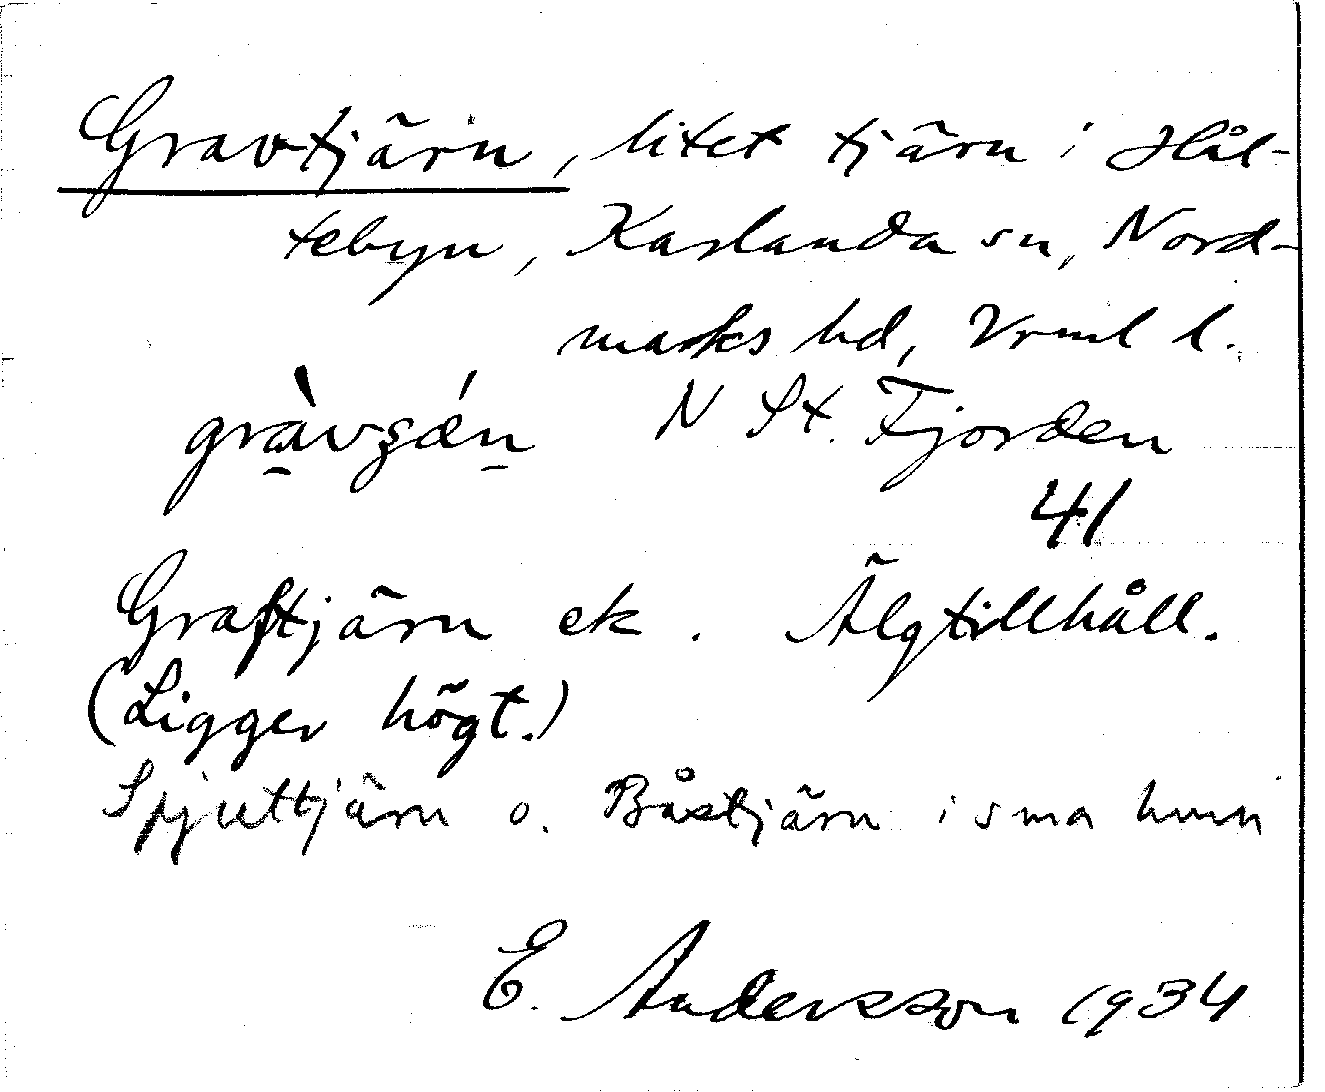 Gravtjärn, litet tjärn i Hål-
tebyn, Karlanda sn, Nord-
marks hd, Vrml l.
gràvʒǽn N St. Fjorden
41
Graftjärn ek. Älgtillhåll.
(Ligger högt.)
Spjuttjärn o. Båstjärn i sma hmn
E. Andersson 1934